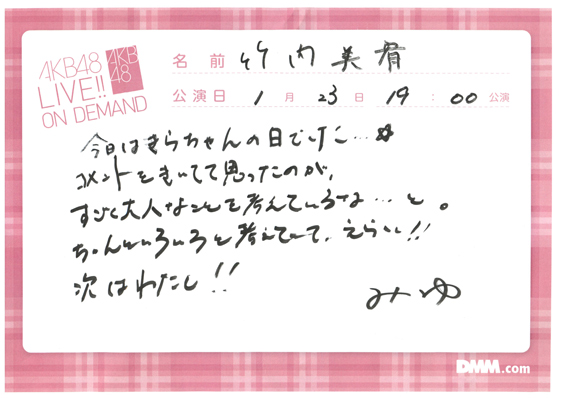 AKB48
LIVE!!
ON DEMAND
AKB
48
名前 竹内美宥
公演日 1月23日 19:00公演
今日はきらちゃんの日でした…☆
コメントをきいてて思ったのが、
すごく大人なことを考えているな…と。
ちゃんといろいろと考えていて、えらい!!
次はわたし!!
みゆ
DMM.com